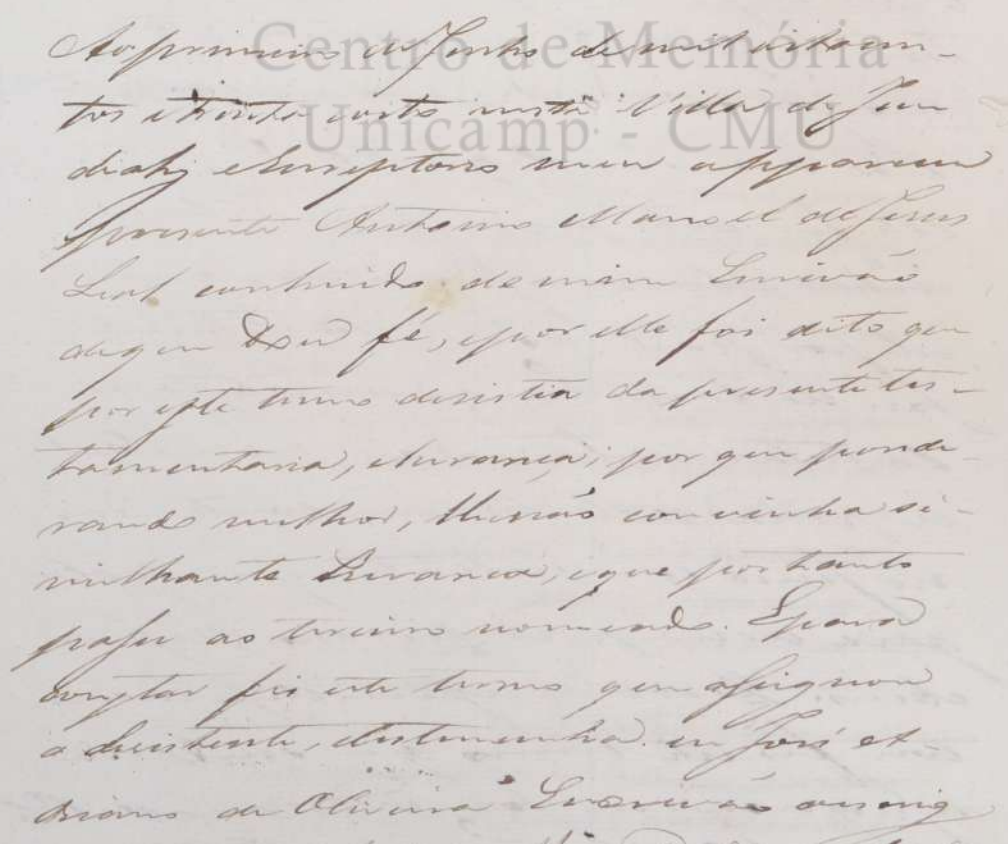 Centro de Memória
Unicamp - CMU
Ao primeiro de Junho de mil oitocen-
tos e trinta e oito nesta Villa de Jun
diahy e Escriptorio meu appareceu
presente Antonio Manoel de Jesus
Leal conhecido de mim Escrivão
de que dou fé, e por elle foi dito que
por este termo desistia da presente tes-
tamentaria, e herança; porque ponde-
rando milhor, lhe não convinha si-
milhante herança, e que portanto
passe ao terceiro nomeado. E para
constar fis este termo que assignou
o desistente, e testemunha. eu José
de Oliveira Escrivão